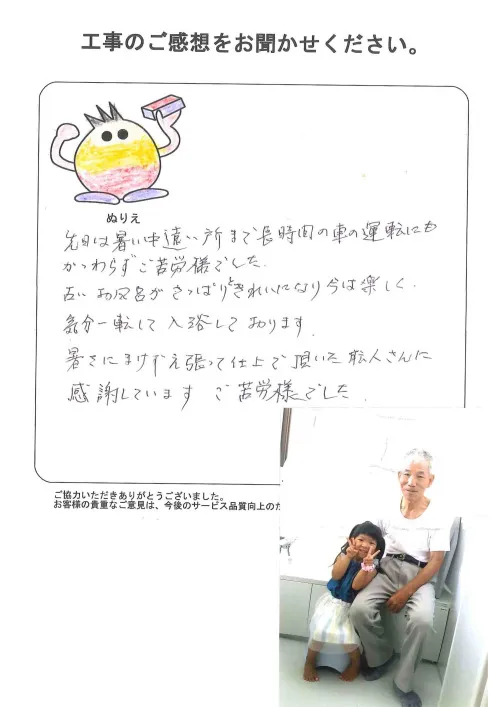 工事のご感想をお聞かせください。
ぬりえ
先日は暑い中遠い所まで長時間の車の運転にも
かかわらずご苦労様でした.
古いお風呂がさっぱりときれいになり今は楽しく.
気分一転して入浴しております.
暑さにまけず頑張って仕上て頂いた職人さんに
感謝しています ご苦労様でした
ご協力いただきありがとうございました。
お客様の貴重なご意見は、今後のサービス品質向上のた